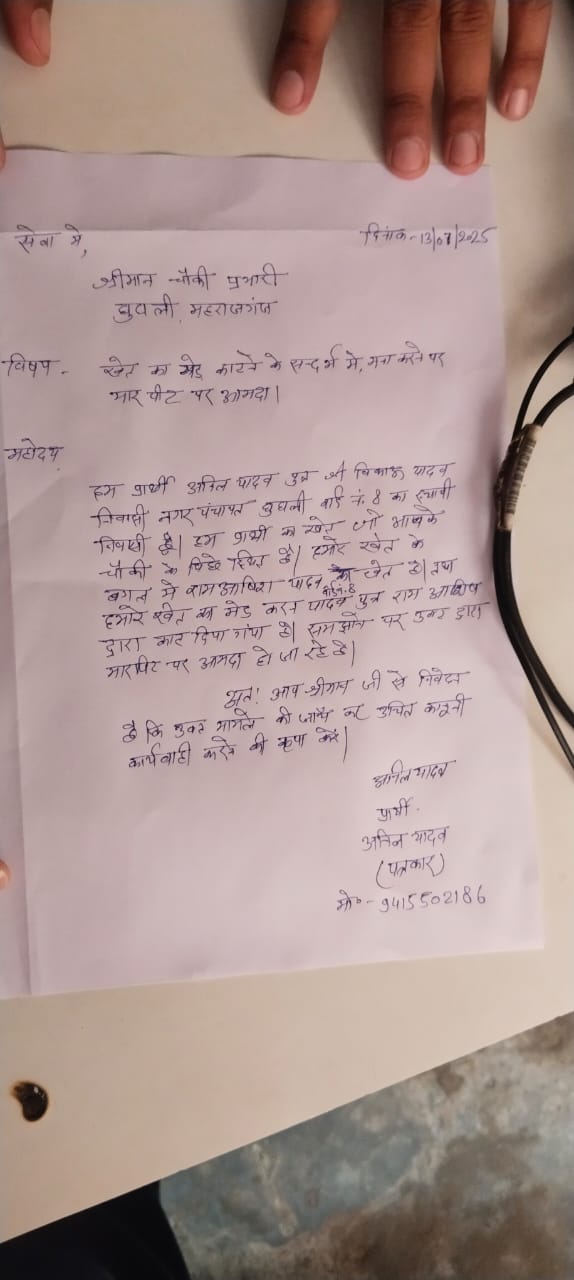 सेवा मे,
दिनांक-13/07/2025
श्रीमान चौकी प्रभारी
घुघली, महराजगंज
विषय- खेत का मेड़ काटने के सन्दर्भ मे, मना करने पर
मार पीट पर आमदा।
महोदय
हम प्रार्थी अनिल यादव पुत्र श्री यादव
निवासी नगर पंचायत घुघली वार्ड नं. 8 का स्थायी
निवासी है। हम प्रार्थी का खेत जो आपके
चौकी के स्थित है। हमारे खेत के
बगल मे राम आशिष यादव का खेत है।
वार्ड नं. 8
हमारे खेत का मेड़ यादव पुत्र राम आशिष
द्वारा काट दिया गया है। समझाने पर उक्त द्वारा
मारपिट पर आमदा हो जा रहे है।
अतः आप श्रीमान जी से निवेदन
है कि उक्त मामले की जांच कर उचित कानूनी
कार्यवाही करने की कृपा करें।
अनिल यादव
प्रार्थी
अनिल यादव
(पत्रकार)
मो०-9415502186